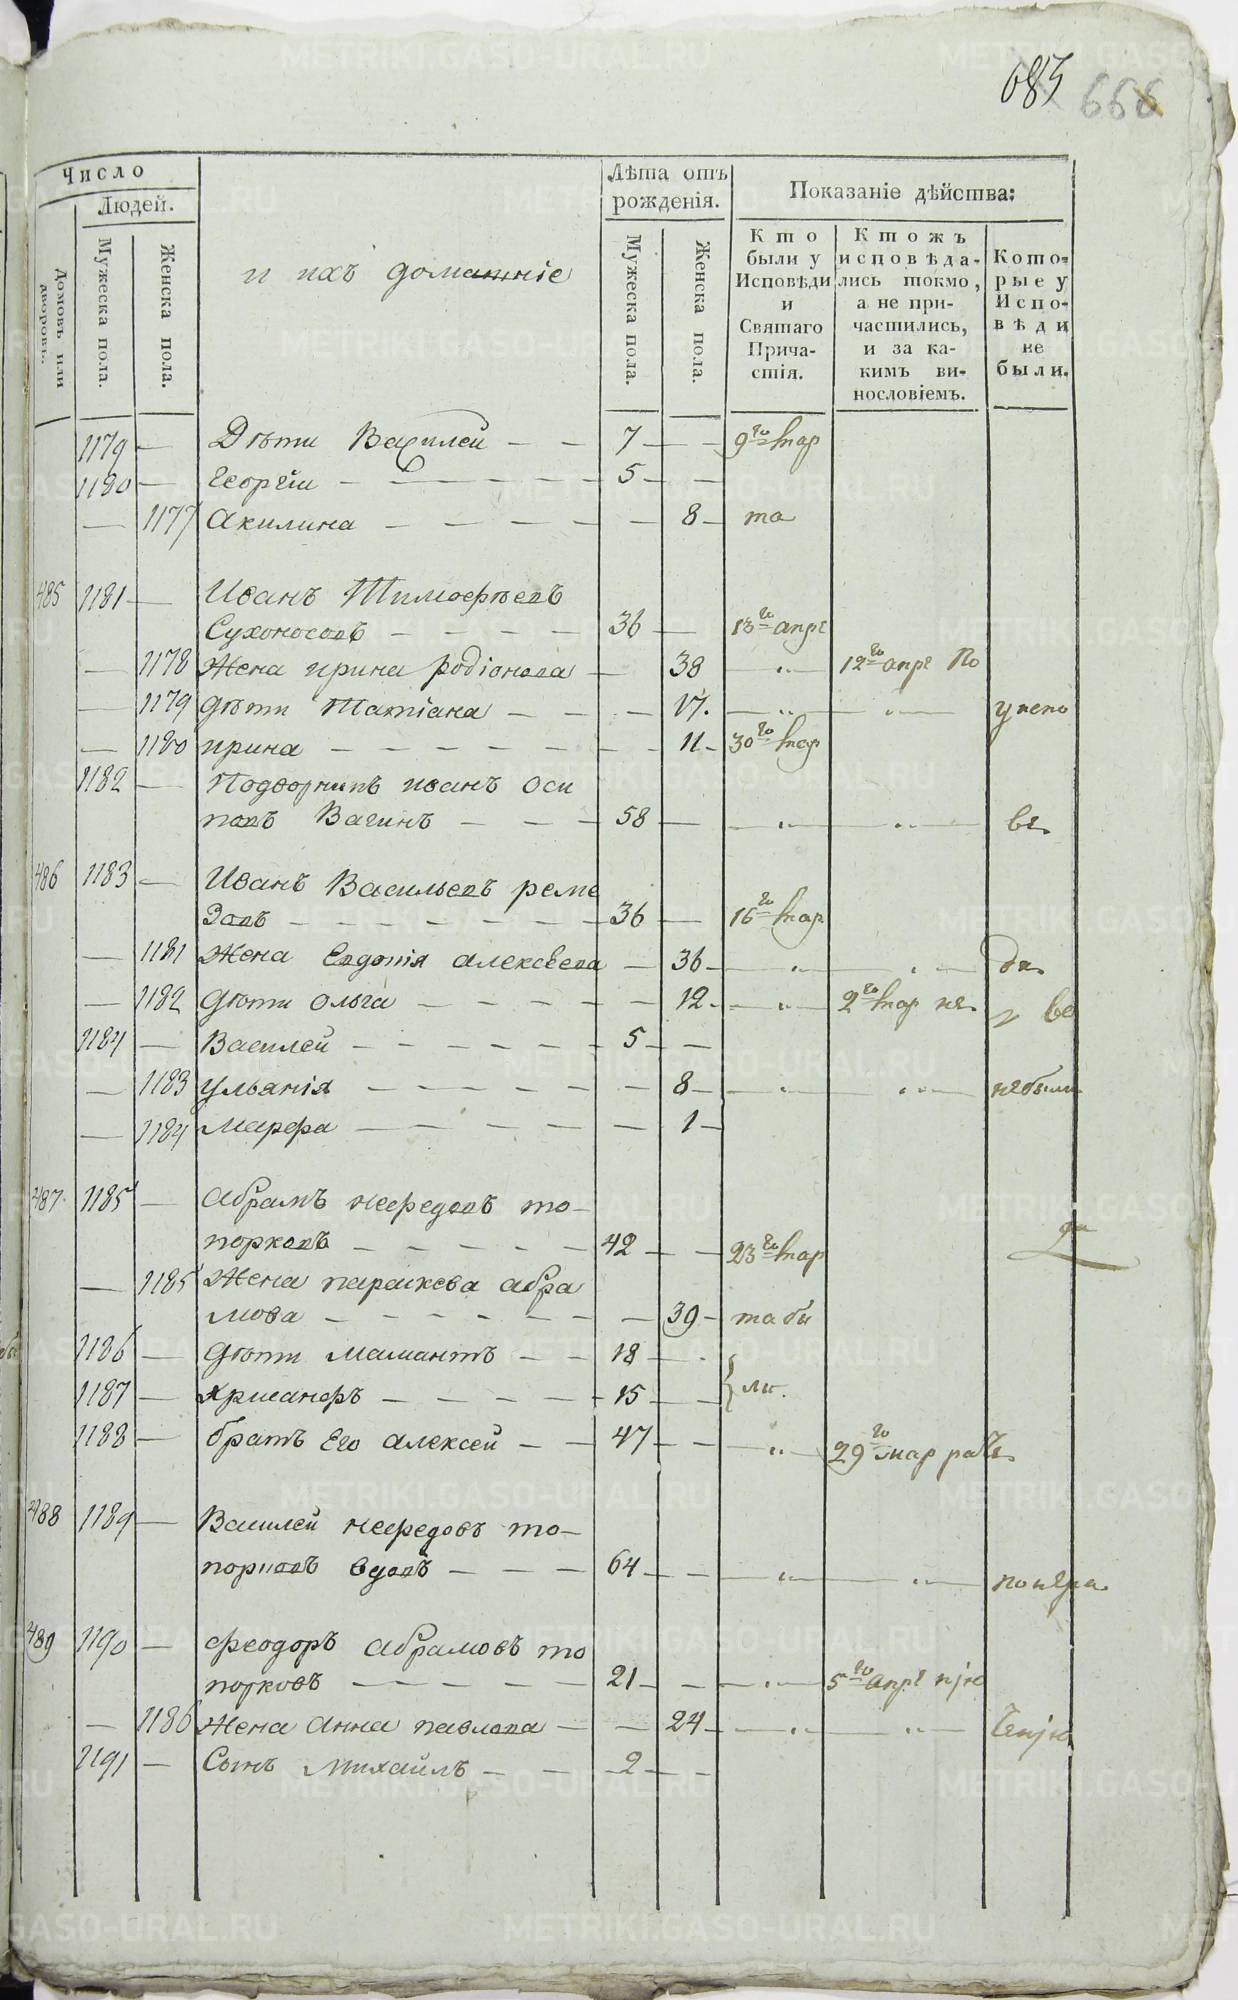 685 666
Число
Людей.
Домовъ или дворовъ.
Мужеска пола.
Женска пола.
и ихъ домашніе
Лѣта отъ рожденія.
Мужеска пола.
Женска пола.
Показаніе дѣйства:
Кто были у Исповѣди и Святаго Причастія.
Ктожъ исповѣдались токмо, а не причастились, и за какимъ винословіемъ.
Которые у Исповѣди не были.
1179 — Дѣти Василей — — 7 — — 9го мар
1180 — Георгіи — — — — 5 — —
— 1177 Акилина — — — — — 8 — та
485 1181 — Иванъ Тимофѣевъ
Сухоносовъ — — — — 36 — 13го апрг
— 1178 Жена ирина родіонова — 38 — „ — 12го апрг По
— 1179 дѣти Татіана — — — 17. — „ — „ — у испо
— 1180 ирина — — — — — 11 — 30го мар
1182 — Подворникъ иванъ оси
повъ Вагинъ — — — 58 — — „ — „ — ве
486 1183 — Иванъ Васильевъ реме
зовъ — — — — — 36 — 16го мар
— 1181 Жена Евдотія алексѣева — 36 — „ — „ — ди
— 1182 дѣти ольга — — — — 12 — „ — 2го мар не
1184 — Василей — — — — 5 — —
— 1183 ульянія — — — — 8 — „ — „ — небыли
— 1184 марфа — — — — — 1 —
487 1185 — абрамъ нефедовъ то–
порковъ — — — — 42 — — 23го мар
— 1185 Жена параскева абра
мова — — — — — 39 — та бы
1186 — дѣти мамантъ — — 18 — —
1187 — Хрисанфъ — — — 15 — — ли.
1188 — братъ Его алексей — — 47 — — „ — 29го мар
488 1189 — Василей нефедовъ то–
порковъ вдовъ — — — 64 — — „ — „ —
489 1190 — феодоръ абрамовъ то
порковъ — — — — 21 — — „ — 5го апрг
— 1186 Жена анна павлова — — 24 — „ — „ —
1191 — Сынъ михаилъ — — — 2 — —
METRIKI.GASO-URAL.RU